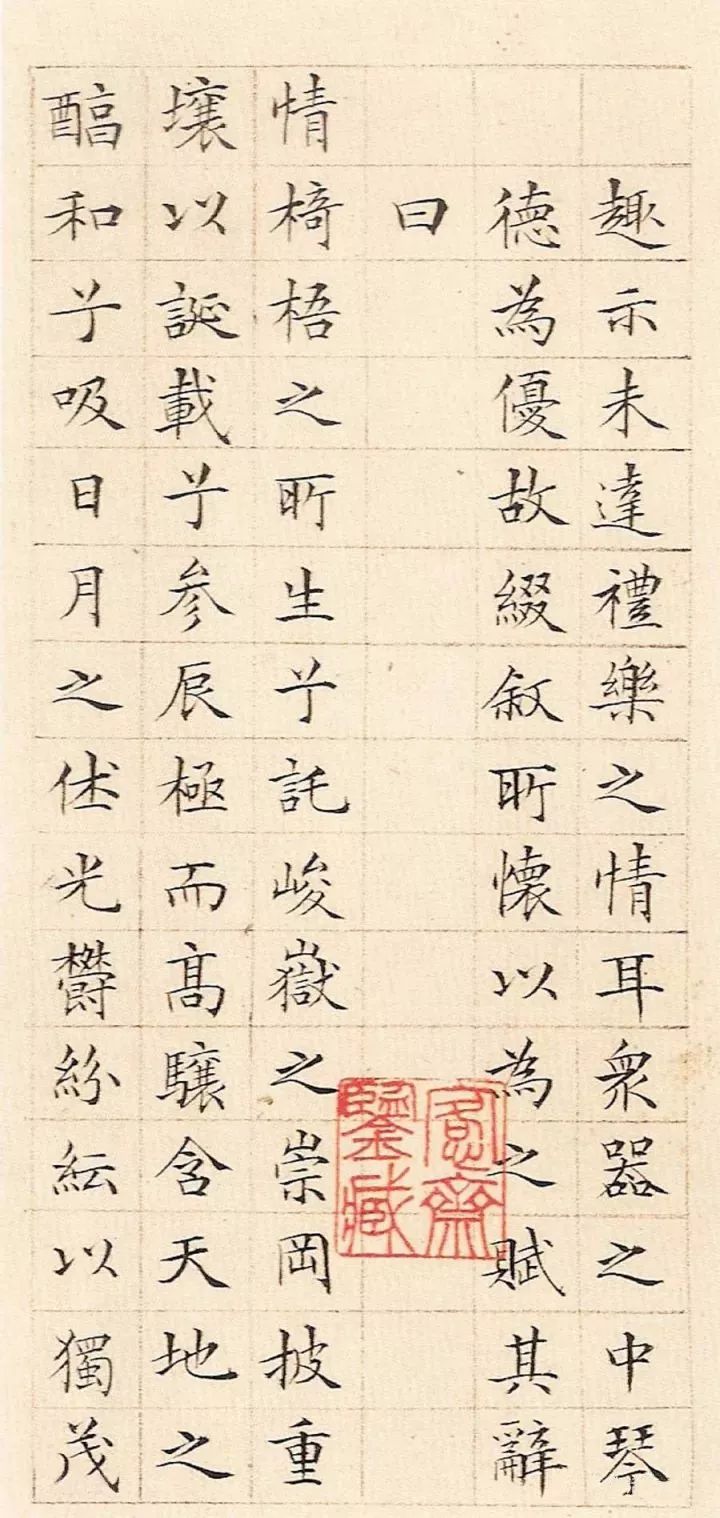 趣示未達禮樂之情耳衆器之中琴
徳為優故綴叙所懷以為之賦其辭
曰
情椅梧之所生兮託峻嶽之崇岡披重
壤以誕載兮参辰極而髙驤含天地之
醕和兮吸日月之休光鬱紛紜以獨茂
愙齋
鑒藏